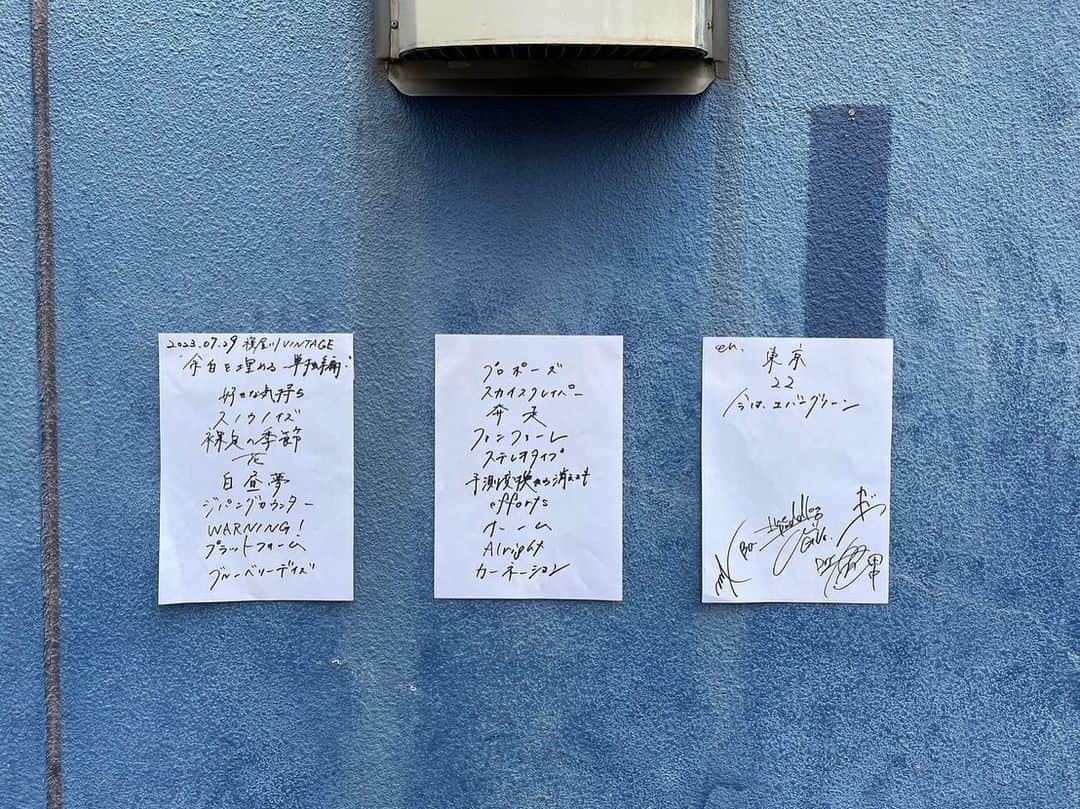 2023.07.29 横川VINTAGE
"余白を埋める -単独編-"
好きな気持ち
スノウノイズ
裸足の季節
花
白昼夢
ジパングカウンター
WARNING!
プラットフォーム
ブルーベリーデイズ
プロポーズ
スカイスクレイパー
奔走
ファンファーレ
ステレオタイプ
予測変換から消えても
efforts
ホーム
Alright
カーネーション
en.
東京
22
今は、エバーグリーン
Ba.
Gt.Vo.
Dr.